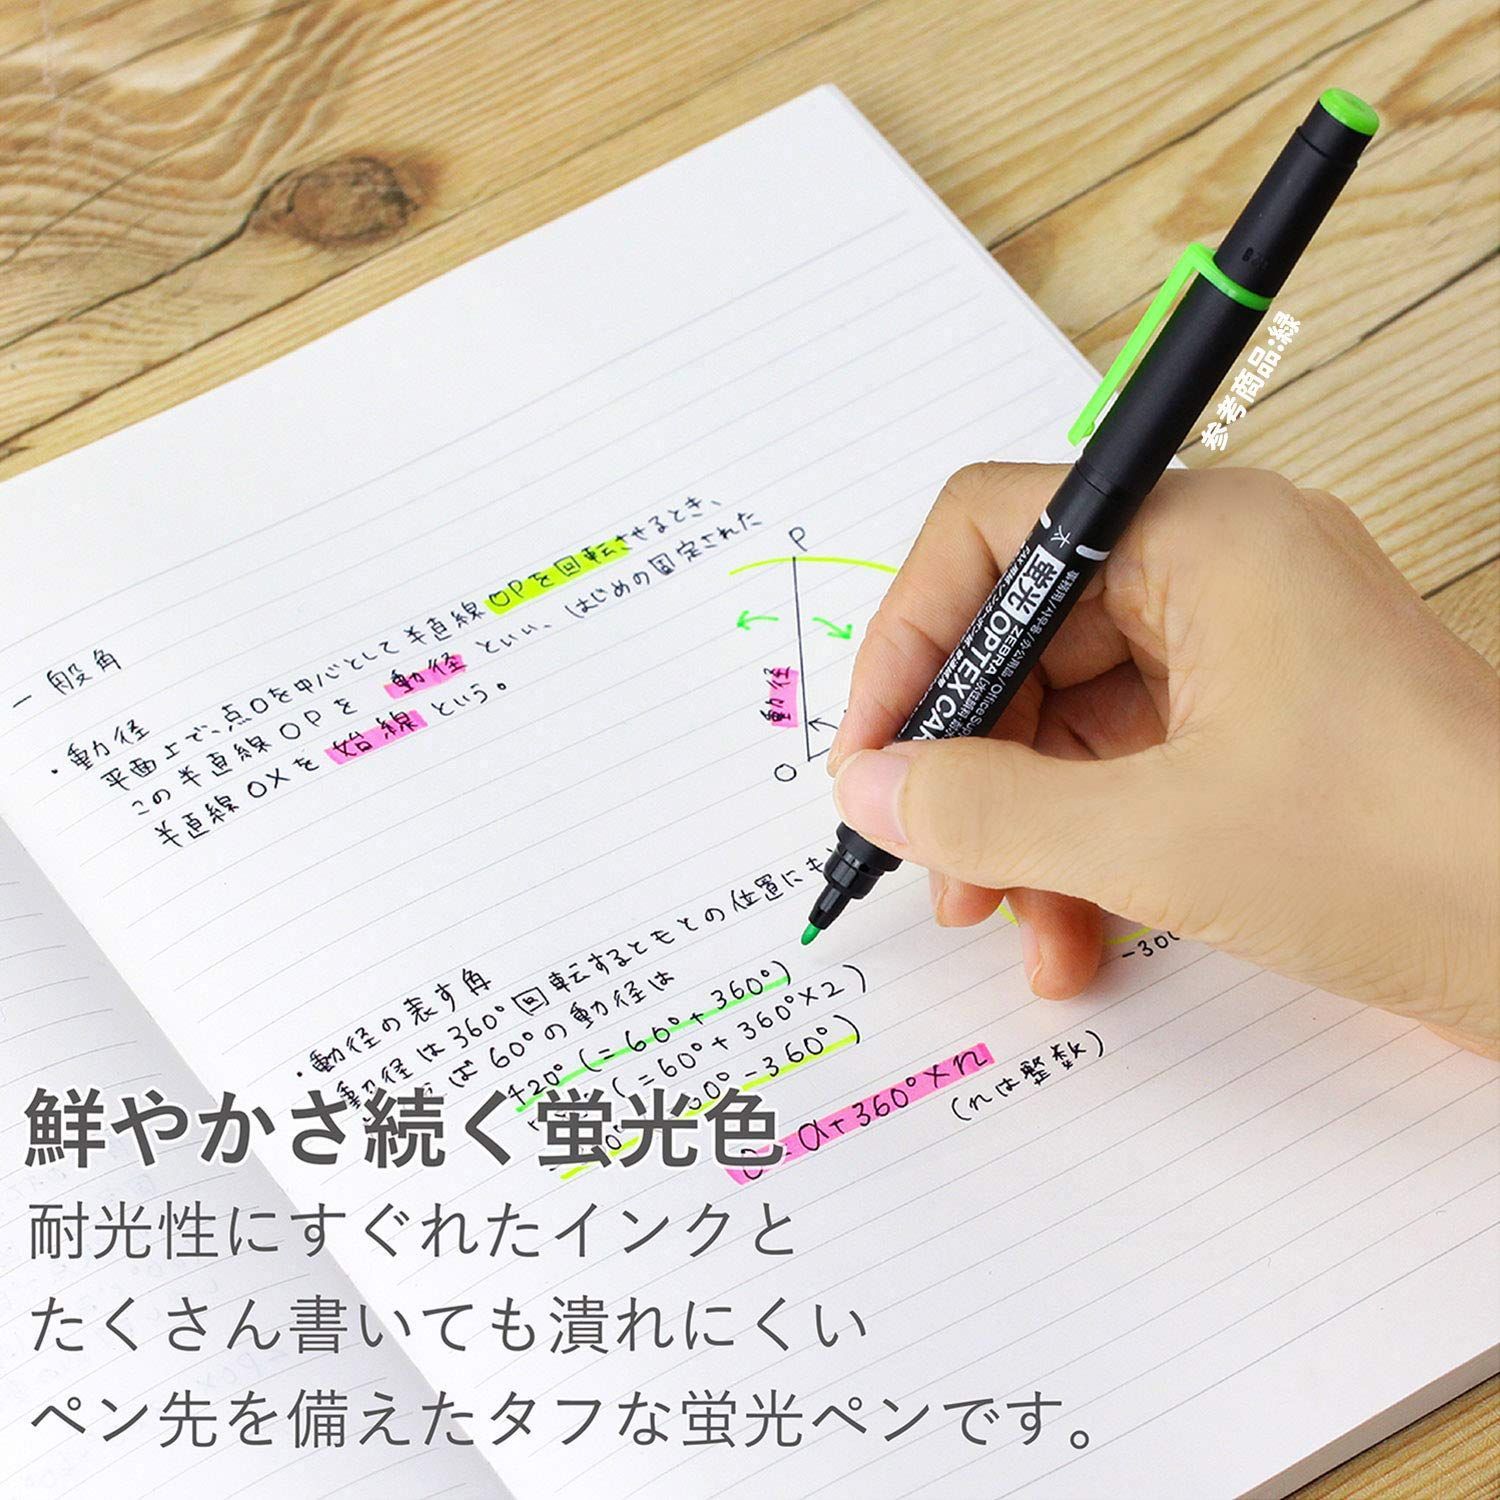 参考商品:緑
太
蛍光 OPTEX CAR
ZEBRA
事務用/사무용/办公用品/Office Sup
一般角
・動径
平面上で、点Oを中心として半直線OPを回転させるとき、
この半直線OPを 動径 といい、はじめの固定された
半直線OXを 始線 という。
P
動径
O
・動径の表す角
動径は360°回転するともとの位置にも
ば60°の動径は
420°(=60°+360°)
(=60°+360°×2)
0°-360°)
-300
α+360°×n
(nは整数)
鮮やかさ続く蛍光色
耐光性にすぐれたインクと
たくさん書いても潰れにくい
ペン先を備えたタフな蛍光ペンです。